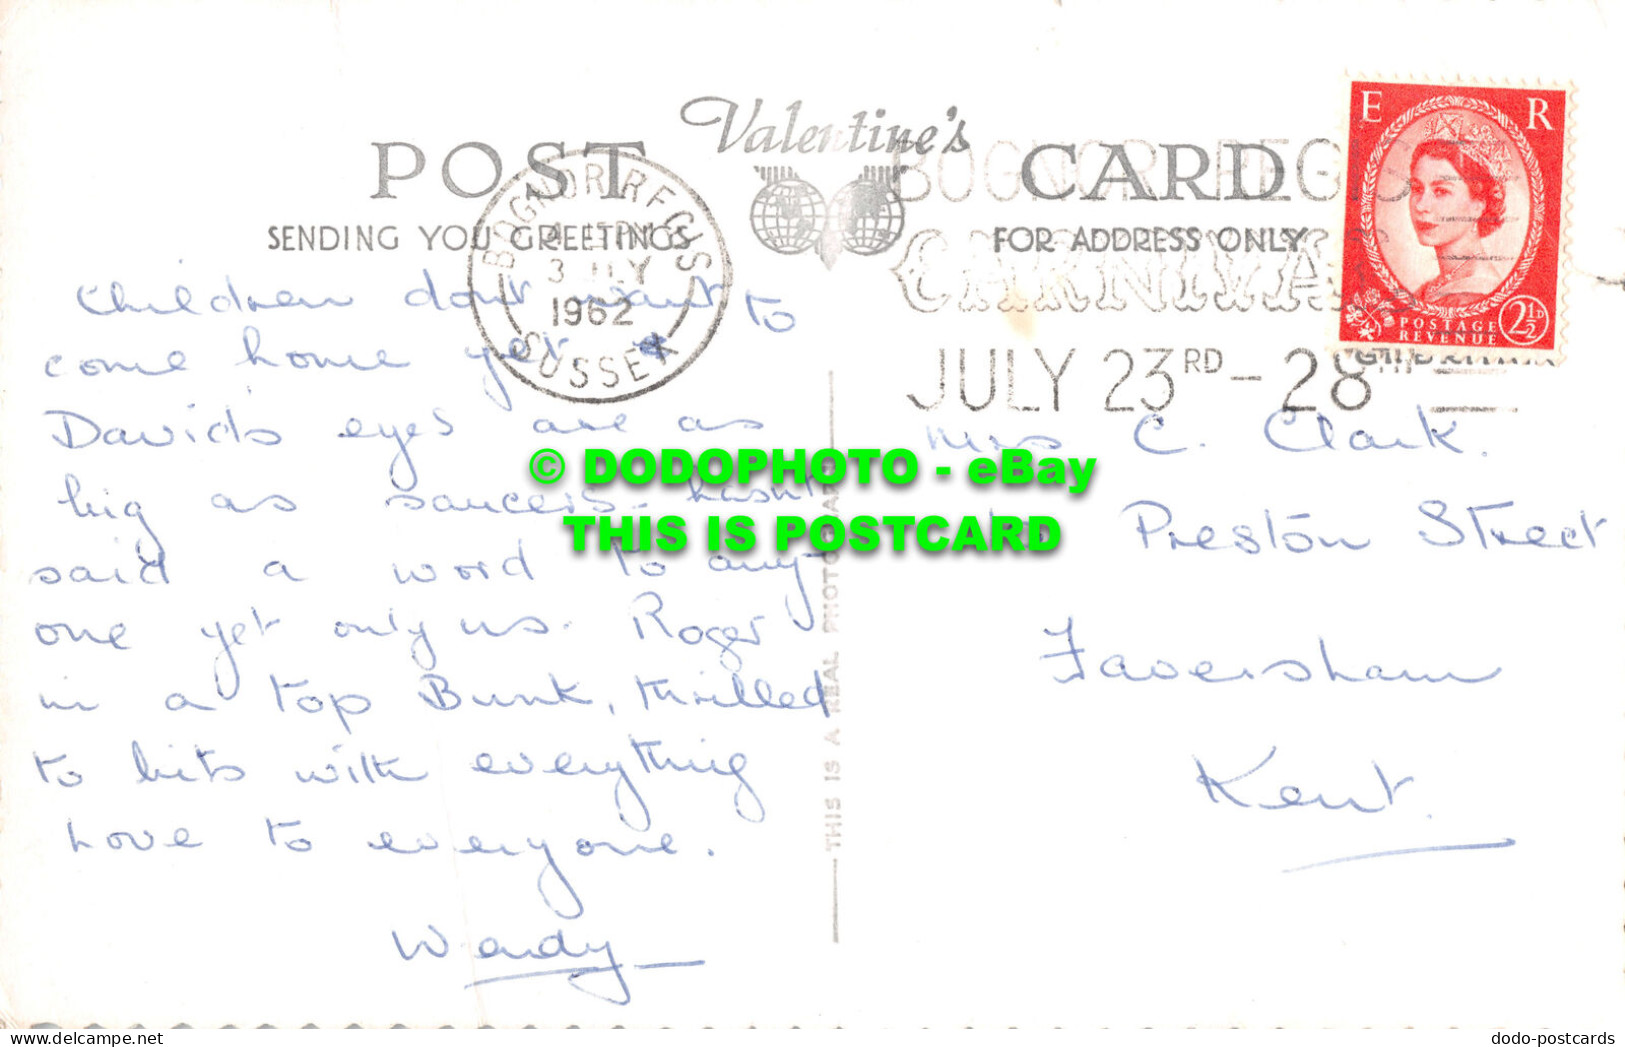 Valentine's
POST CARD
SENDING YOU GREETINGS
FOR ADDRESS ONLY
BOGNOR REGIS
3 JLY
1962
SUSSEX
BOGNOR REGIS
CARNIVAL
JULY 23RD - 28
E R
POSTAGE
REVENUE
2½D
Children dont want to
come home yet
Davids eyes are as
big as saucers - hasnt
said a word to any
one yet only us. Roger
in a top Bunk, thrilled
to bits with everything
Love to everyone.
Wendy
Mrs C. Clark.
Preston Street
Faversham
Kent.
THIS IS A REAL PHOTO
© DODOPHOTO - eBay
THIS IS POSTCARD
dodo-postcards